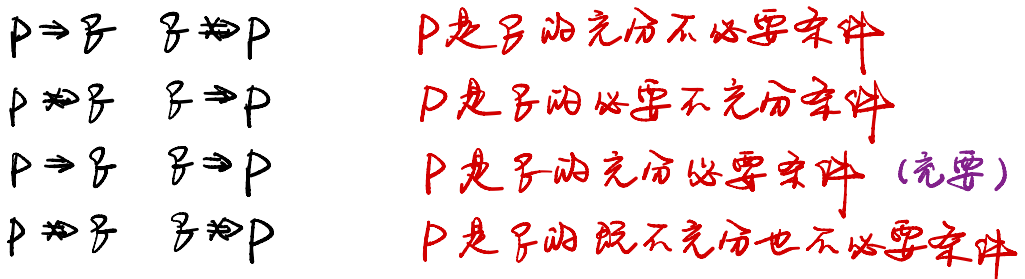 p⇒q q⇏p p是q的充分不必要条件
p⇏q q⇒p p是q的必要不充分条件
p⇒q q⇒p p是q的充分必要条件 (充要)
p⇏q q⇏p p是q的既不充分也不必要条件